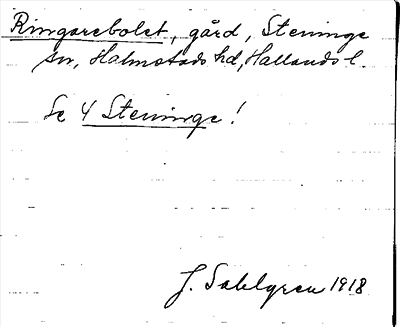 Ringarebolet, gård, Steninge
sn, Halmstads hd, Hallands l.
Se 4 Steninge!
J. Sahlgren 1918